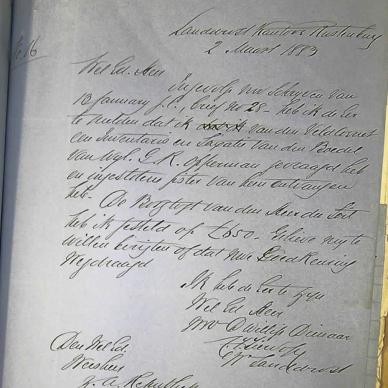 No 16
Landdrost Kantoor Rustenburg
2 Maart 1883
Wel Ed. Heer
Ingevolge Uw schrijven van
13 January j.l., brief No 28 - heb ik de eer
te melden dat ik van den Veldcornet
een Inventaris en Taxatie van den Boedel
van wyl. Opperman gevraagd heb
en ingeslotene van hem ontvangen
heb. De Borgtogt van den Heer du Toit
heb ik gesteld op £650. Gelieve my te
willen berigten of dat Uwe Goedkeuring
Wegdraagd
Ik heb de eer te zyn
Wel Ed. Heer
UwE D Willige Dienaar
Landdrost
Den Wel Ed.
Weesheer